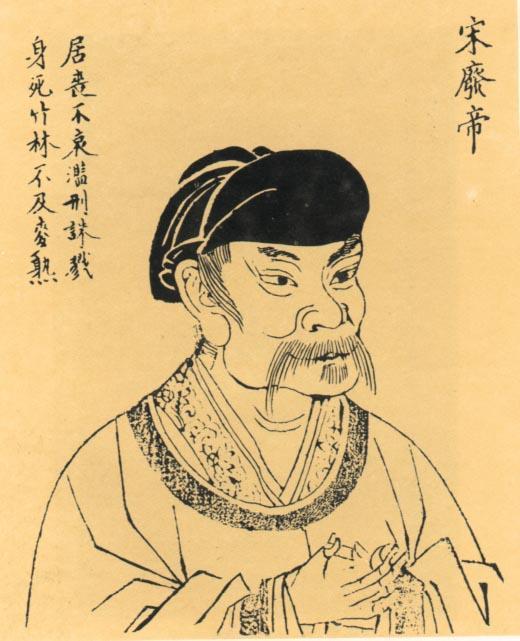 宋廢帝
居喪不哀濫刑誅戮
身死竹林不及麥熟